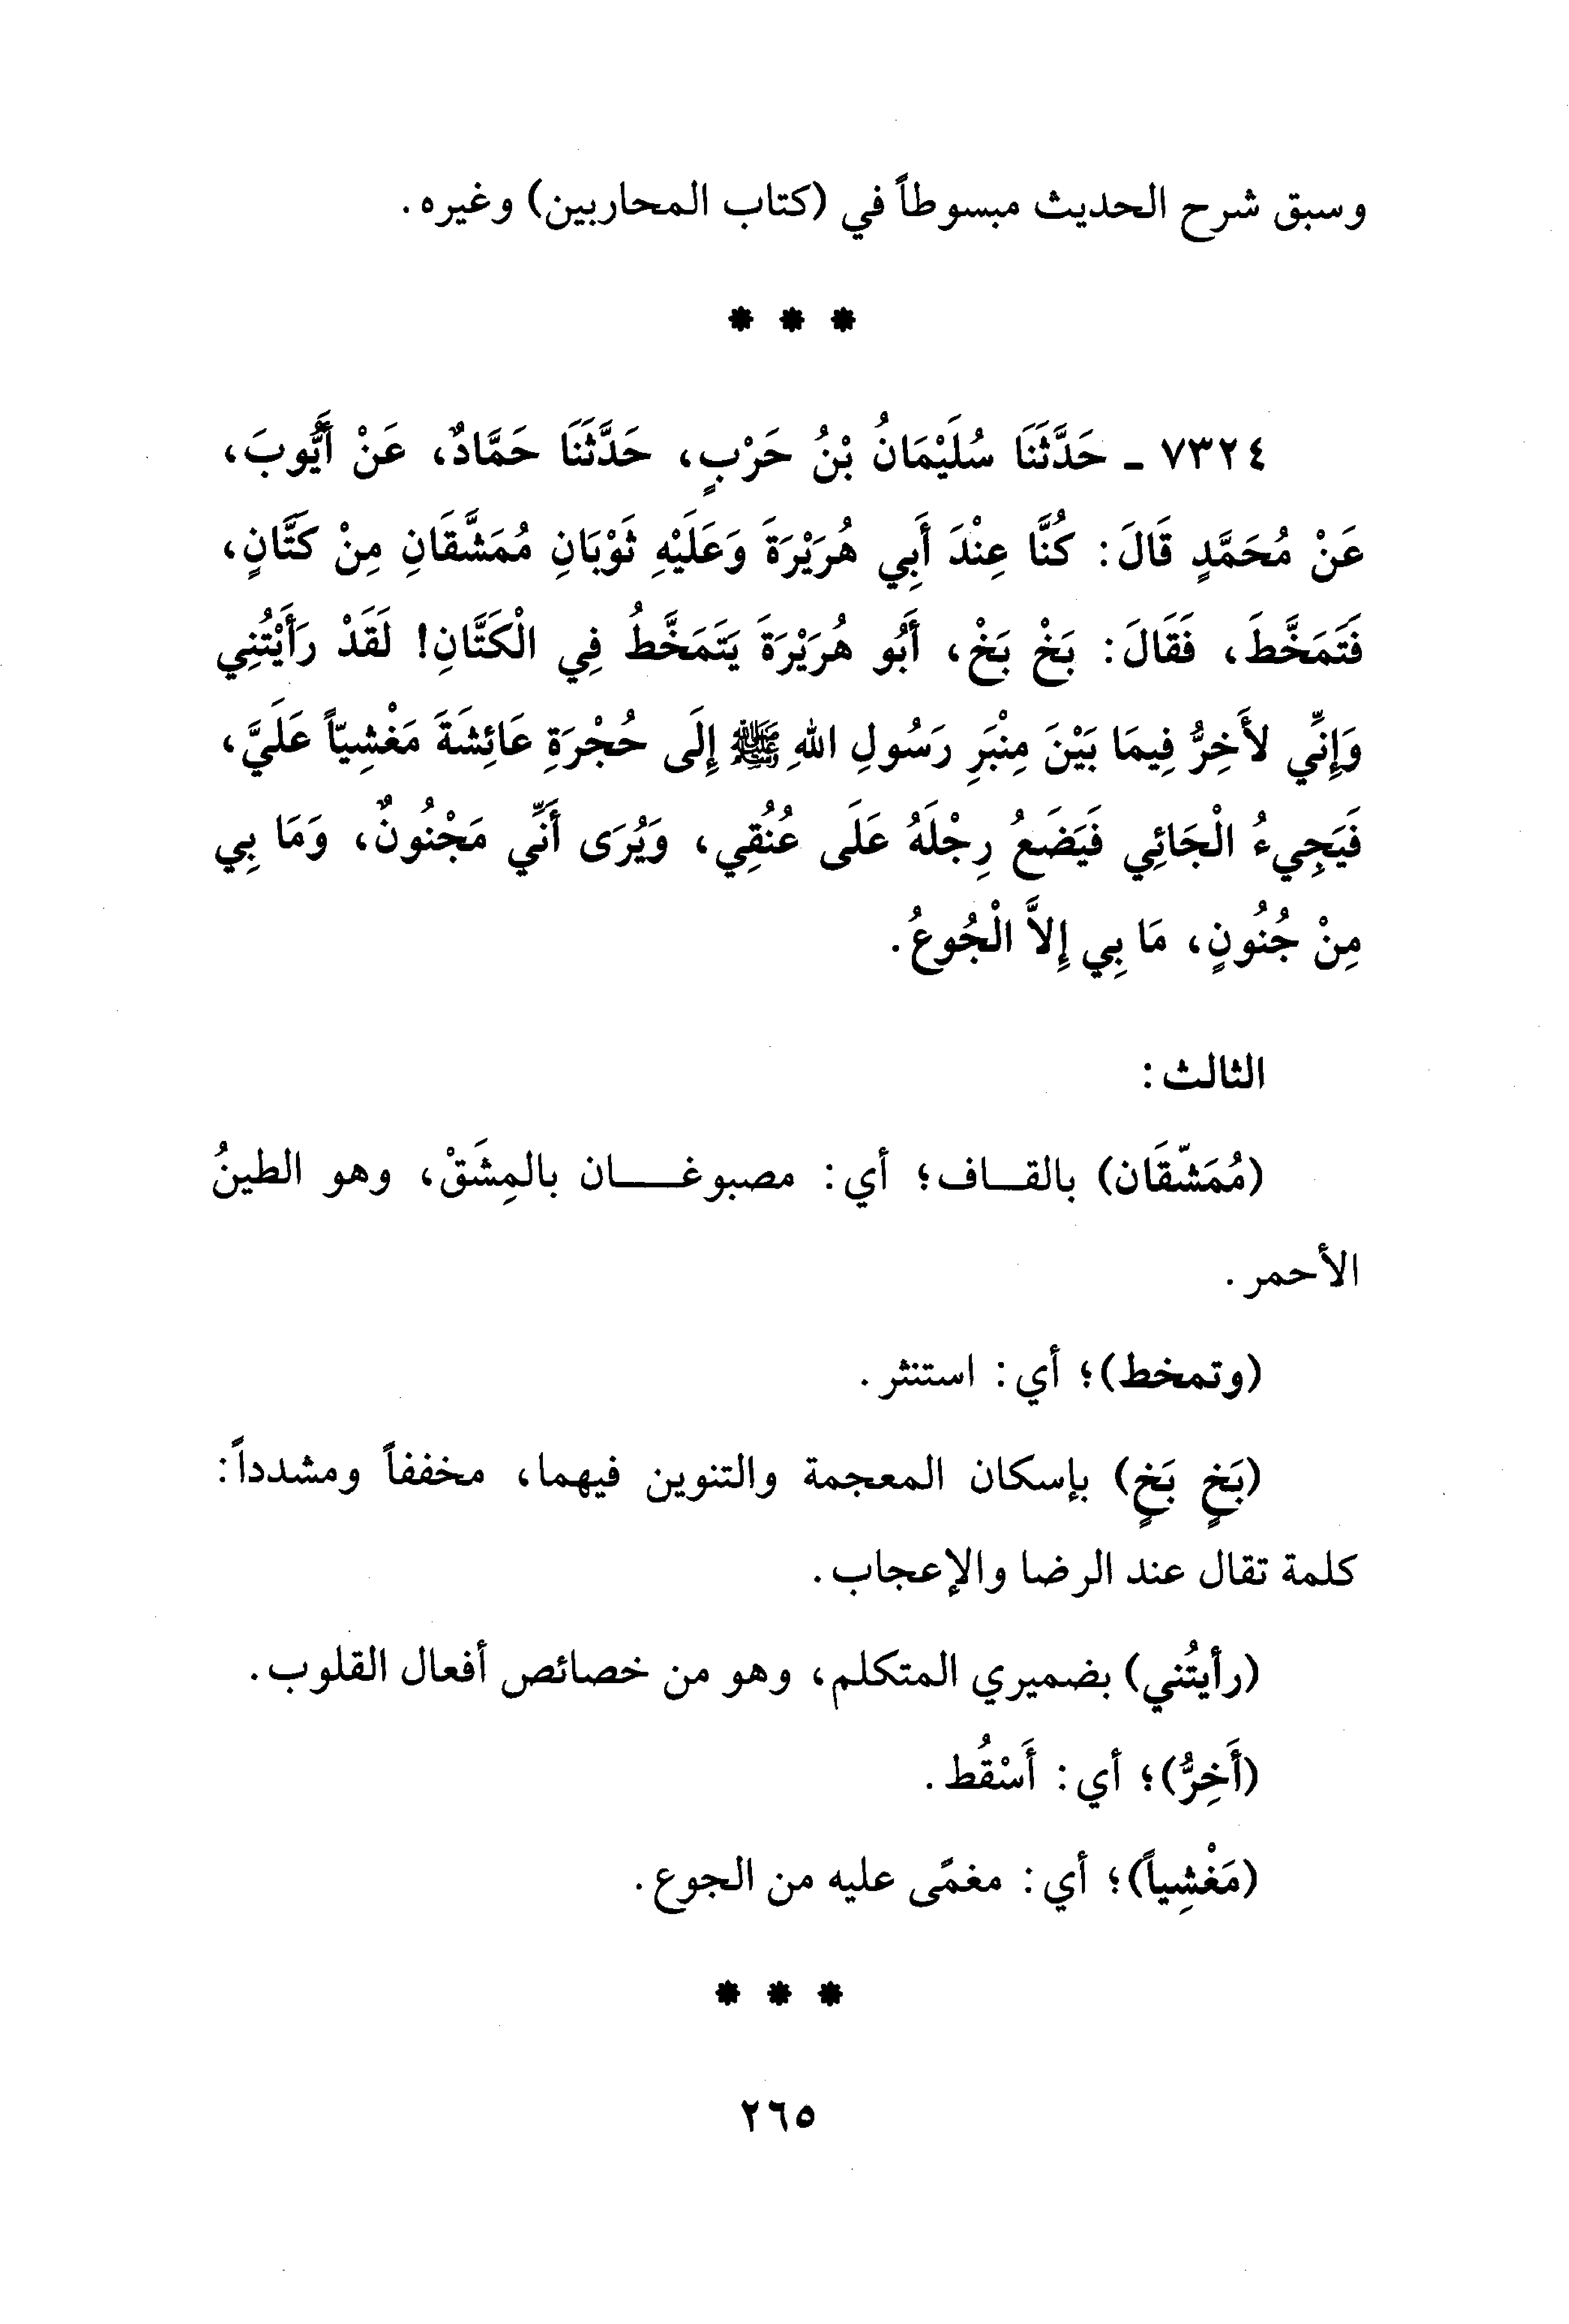 وسبق شرح الحديث مبسوطاً في (كتاب المحاربين) وغيره.
* * *
٧٣٢٤ ـ حَدَّثَنَا سُلَيْمَانُ بْنُ حَرْبٍ، حَدَّثَنَا حَمَّادٌ، عَنْ أَيُّوبَ،
عَنْ مُحَمَّدٍ قَالَ: كُنَّا عِنْدَ أَبِي هُرَيْرَةَ وَعَلَيْهِ ثَوْبَانِ مُمَشَّقَانِ مِنْ كَتَّانٍ،
فَتَمَخَّطَ، فَقَالَ: بَخْ بَخْ، أَبُو هُرَيْرَةَ يَتَمَخَّطُ فِي الْكَتَّانِ! لَقَدْ رَأَيْتُنِي
وَإِنِّي لأَخِرُّ فِيمَا بَيْنَ مِنْبَرِ رَسُولِ اللهِ ﷺ إِلَى حُجْرَةِ عَائِشَةَ مَغْشِيّاً عَلَيَّ،
فَيَجِيءُ الْجَائِي فَيَضَعُ رِجْلَهُ عَلَى عُنُقِي، وَيُرَى أَنِّي مَجْنُونٌ، وَمَا بِي
مِنْ جُنُونٍ، مَا بِي إِلاَّ الْجُوعُ.
الثالث:
(مُمَشّقَان) بالقـاف؛ أي: مصبوغـــان بالمِشَقْ، وهو الطينُ
الأحمر.
(وتمخط)؛ أي: استنثر.
(بَخٍ بَخٍ) بإسكان المعجمة والتنوين فيهما، مخففاً ومشدداً:
كلمة تقال عند الرضا والإعجاب.
(رأيتُني) بضميري المتكلم، وهو من خصائص أفعال القلوب.
(أَخِرُّ)؛ أي: أَسْقُط.
(مَغْشِياً)؛ أي: مغمًى عليه من الجوع.
* * *
٢٦٥